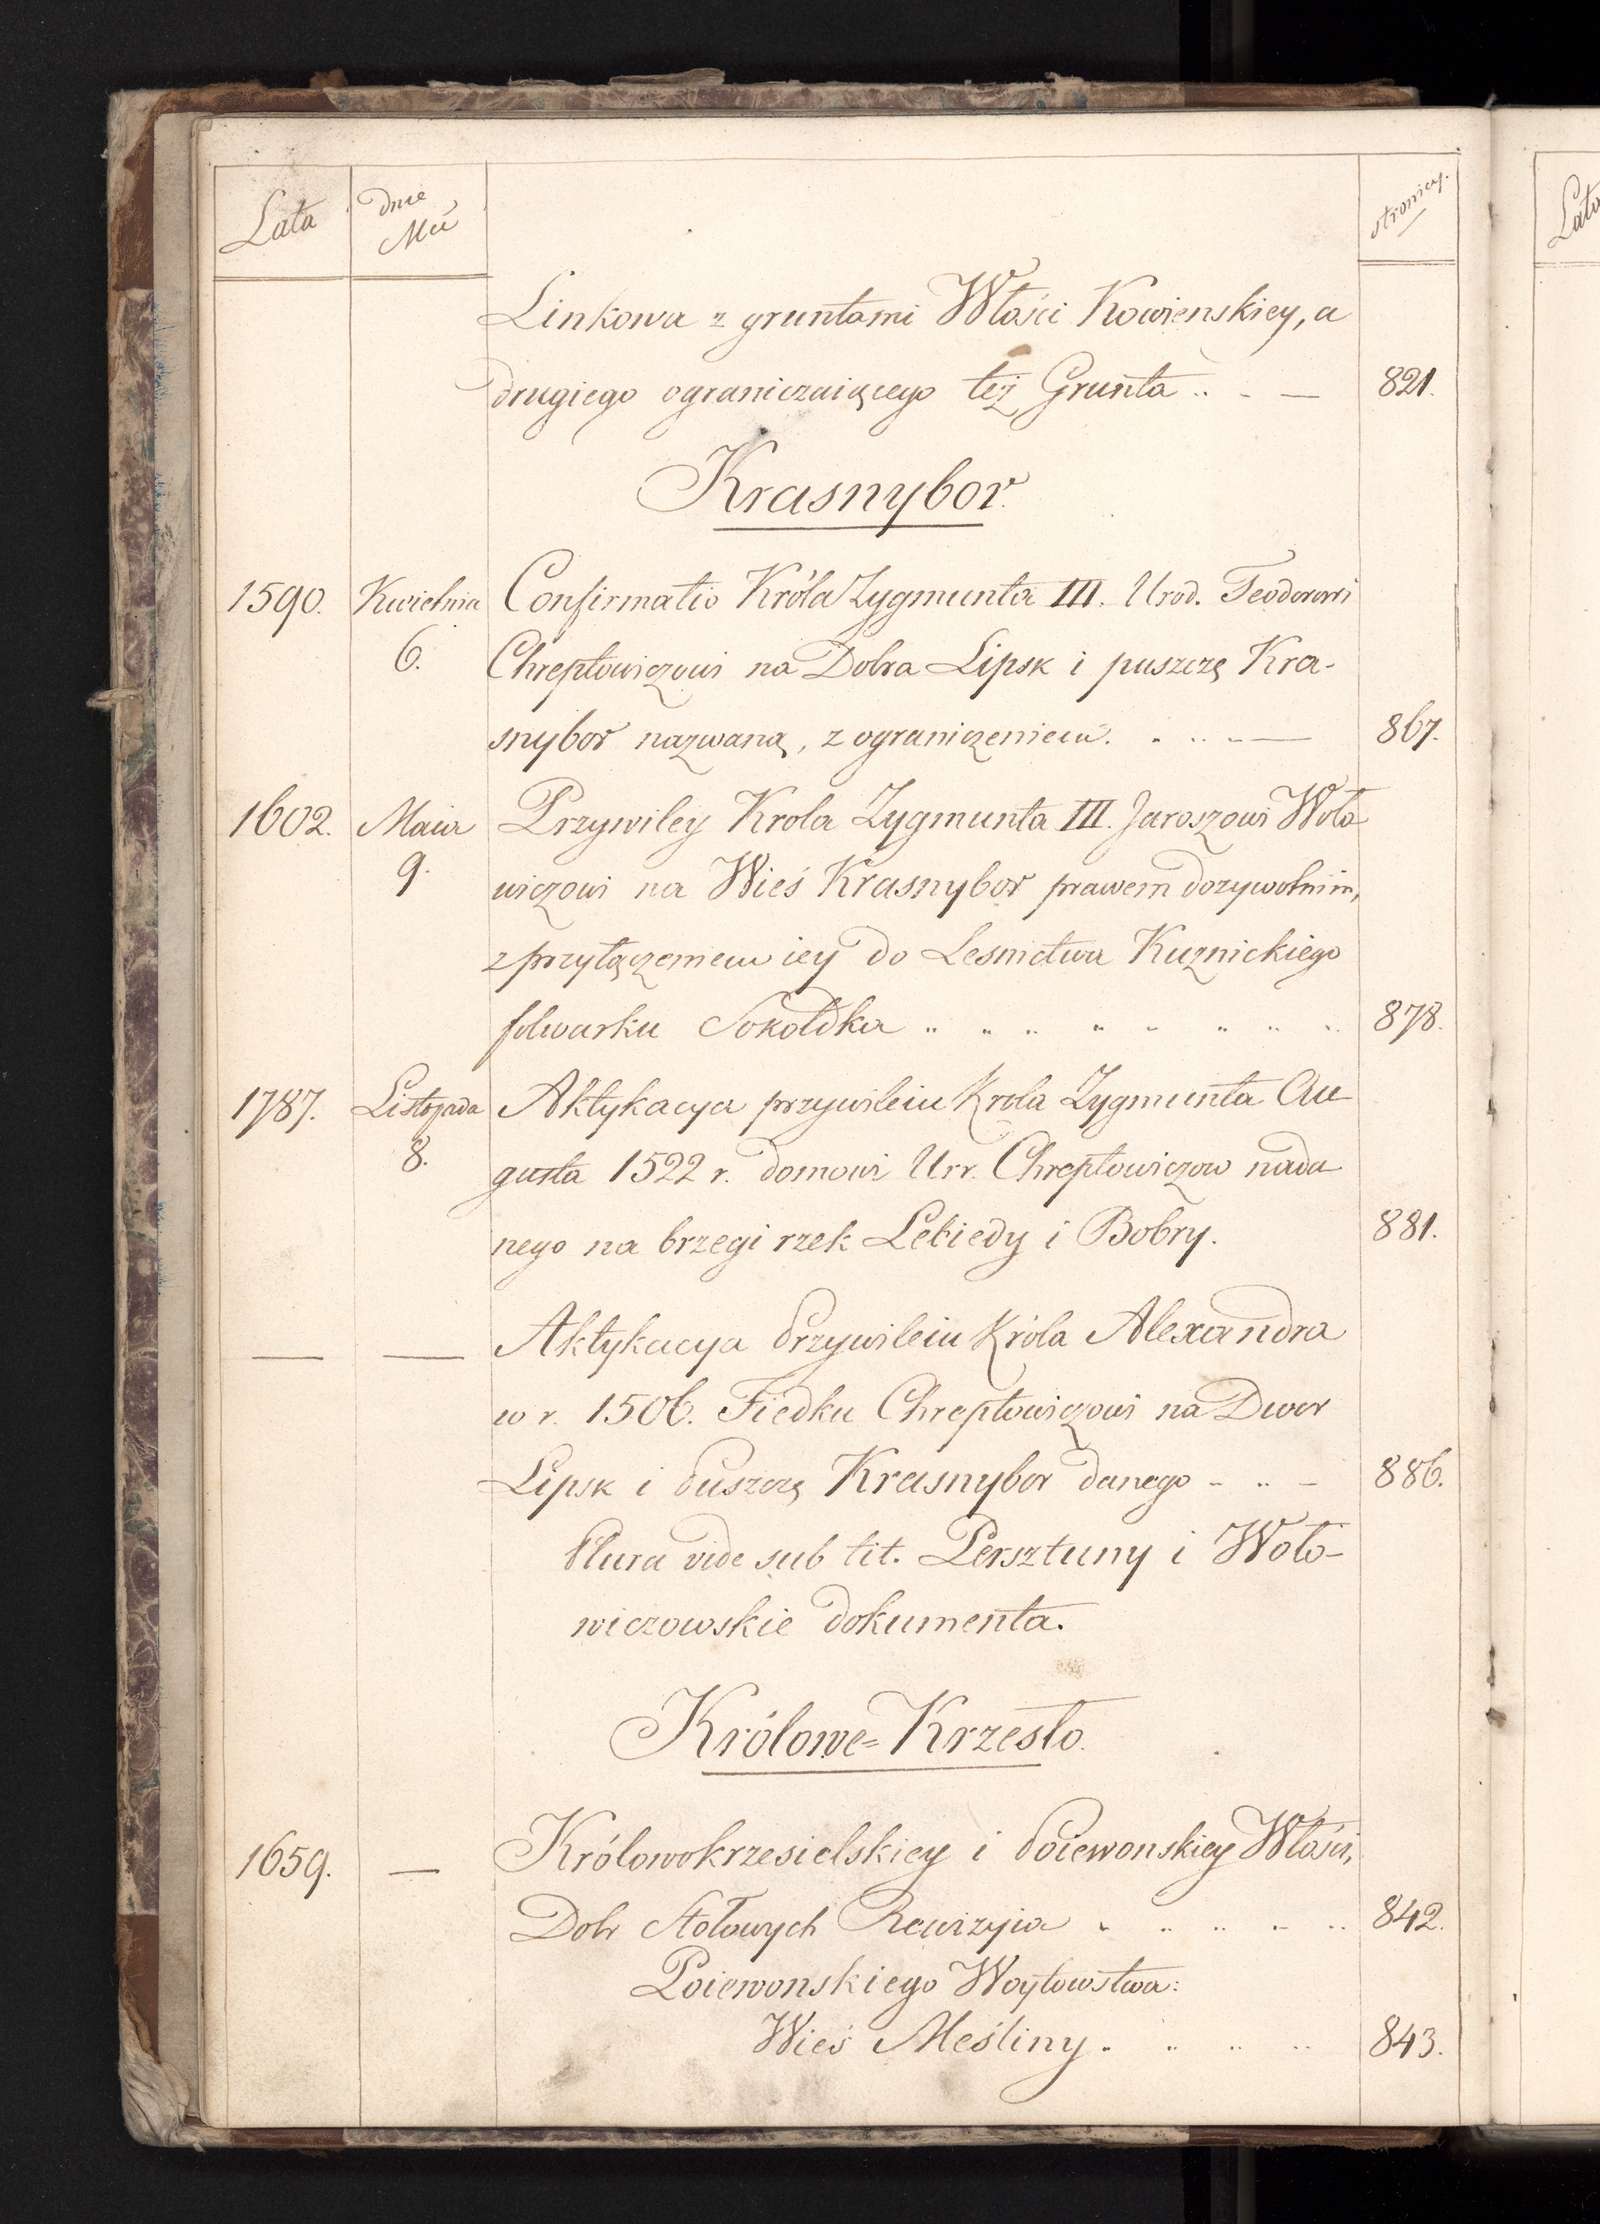 Lata dnie Mca stronicy.
Linkowa z gruntami Włości Kowienskiey, a
drugiego ograniczaiącego też Grunta .. - — 821.
Krasnybor.
1590. Kwietnia Confirmatio Króla Zygmunta III. Urod. Teodorowi
6. Chreptowiczowi na Dobra Lipsk i puszczę Kra-
snybor nazwaną, z ograniczeniem. - .. - — 867.
1602. Maia Przywiley Krola Zygmunta III. Jaroszowi Woło
9. wiczowi na Wieś Krasnybor prawem dozywotnim,
z przyłączeniem iey do Lesnictwa Kuznickiego
folwarku Sokołdka .. .. .. .. .. .. .. .. 878.
1787. Listopada Aktykacya przywileiu Krola Zygmunta Au
8. gusta 1522 r. domowi Urr. Chreptowiczow nada
nego na brzegi rzek Lebiedy i Bobry. 881.
— — Aktykacya Przywileiu Króla Alexandra
w r. 1506. Fiedku Chreptowiczowi na Dwor
Lipsk i Puszczę Krasnybor danego - .. - 886.
Plura vide sub tit. Persztuny i Woło-
wiczowskie dokumenta.
Królowe=Krzesło.
1659. — Królowokrzesielskiey i Poiewonskiey Włości,
Dobr Stołowych Rewizyia .. .. .. .. .. 842.
Poiewonskiego Woytowstwa:
Wieś Meśliny . .. .. .. 843.
Lata